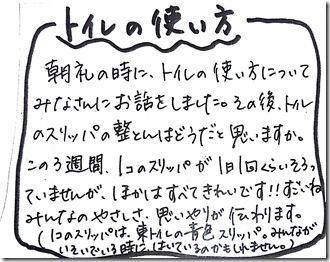 トイレの使い方
朝礼の時に、トイレの使い方について
みなさんにお話をしました。その後、トイレ
のスリッパの整とんはどうだと思いますか。
この3週間、1コのスリッパが1日1回くらいそろっ
ていませんが、ほかはすべてきれいです!!すごいね
みんなのやさしさ、思いやりが伝わります。
(1コのスリッパは、東トイレの青色スリッパ。みんなが
いそいでいる時に、はいているのかもしれません。)